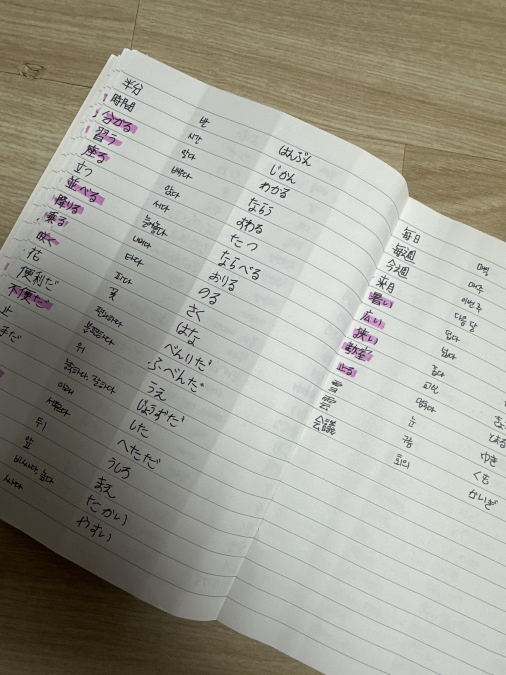 半分 반 はんぶん
時間 시간 じかん
分かる 알다 わかる
習う 배우다 ならう
座る 앉다 すわる
立つ 서다 たつ
並べる 늘어놓다 ならべる
降りる 내리다 おりる
乗る 타다 のる
咲く 피다 さく
花 꽃 はな
便利だ 편리하다 べんりだ
不便だ 불편하다 ふべんだ
上 위 うえ
手だ 능숙하다, 잘하다 じょうずだ
아래 した
서투르다 へただ
뒤 うしろ
앞 まえ
비싸다, 높다 たかい
싸다 やすい
毎日 매일
毎週 매주
今週 이번 주
来月 다음 달
暑い 덥다
広い 넓다
狭い 좁다
教室 교실
止る 멈추다
雪 눈 ゆき
雲 구름 くも
会議 회의 かいぎ